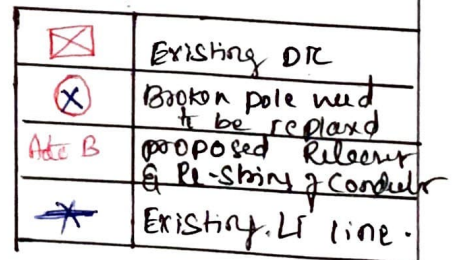 Existing DTR
Broken pole need
to be replaxd
A to B
proposed
& Re-String of Conductor
Existing. LT line.